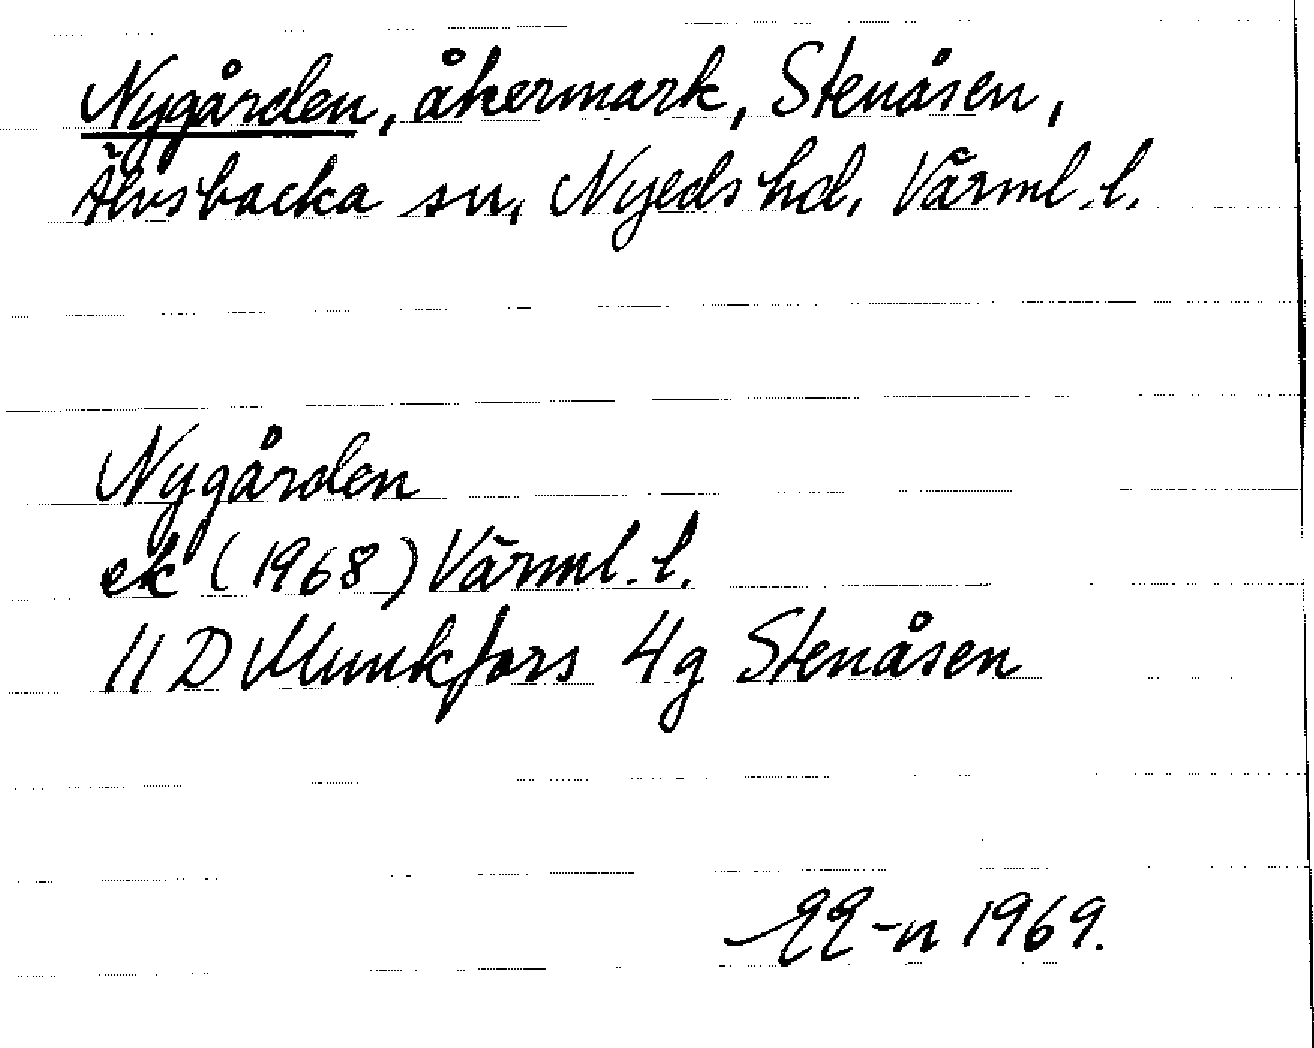 Nygården, åkermark, Stenåsen,
Älvsbacka sn, Nyeds hd, Värml. l.
Nygården
ek (1968) Värml. l.
11 D Munkfors 4g Stenåsen
1969.